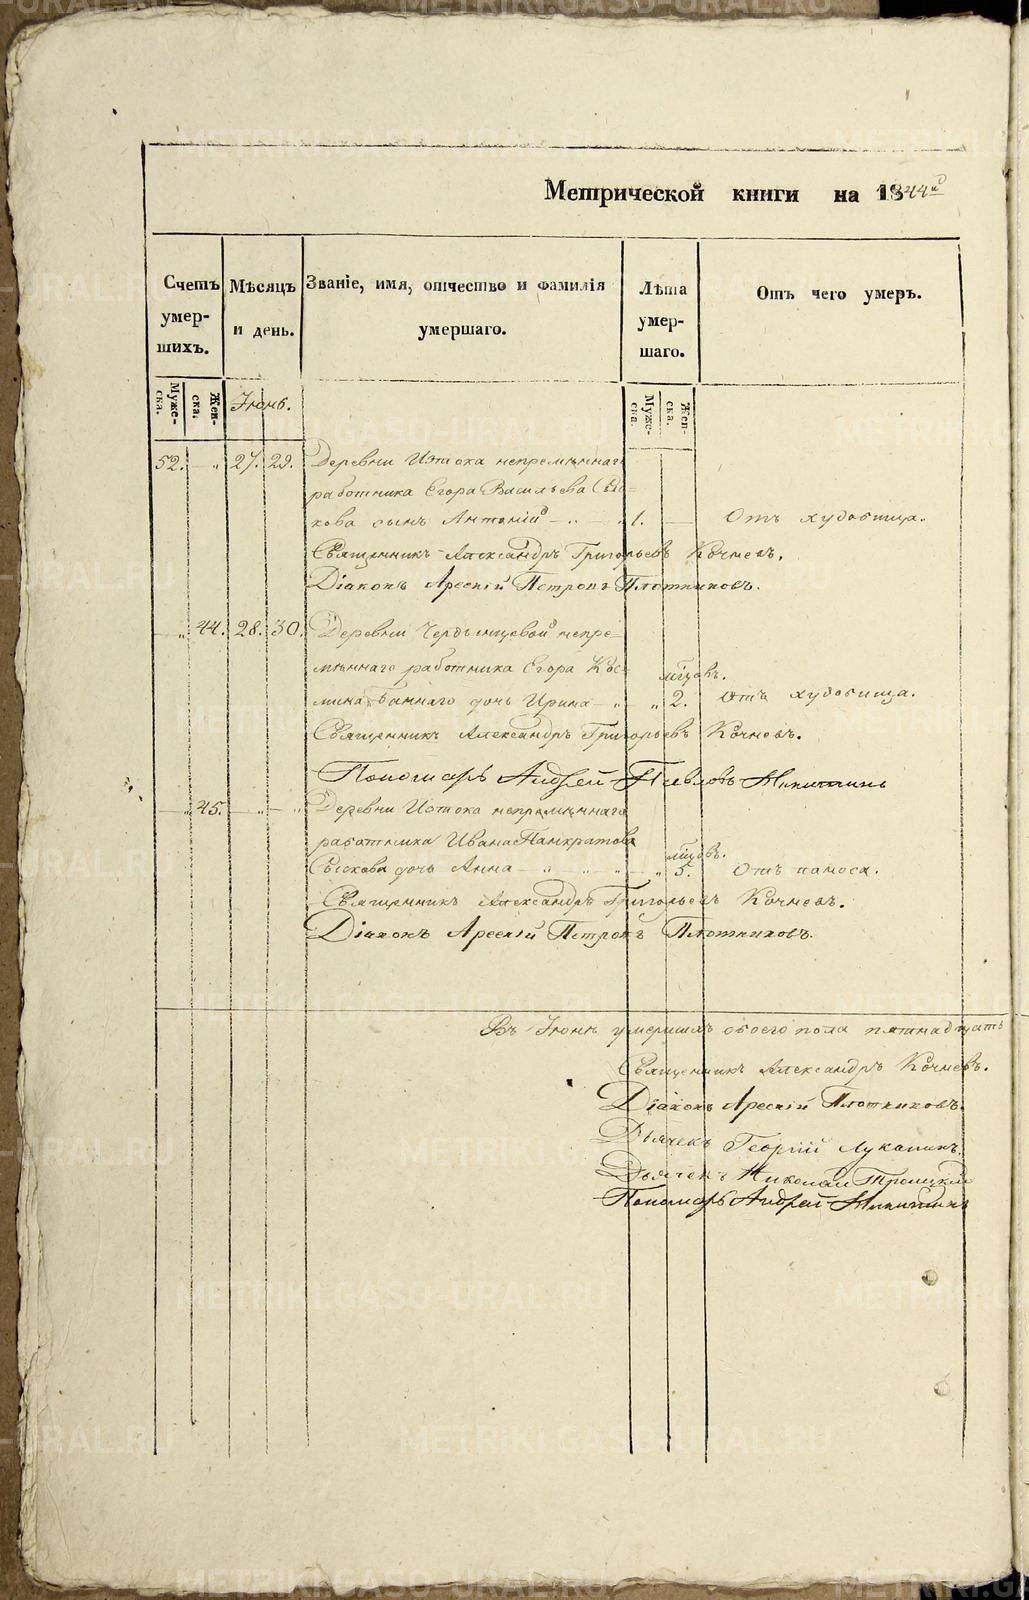 Метрической книги на 1844й
Счетъ умер-шихъ.
Мѣсяцъ и день.
Званіе, имя, отчество и фамилія умершаго.
Лѣта умер-шаго.
Отъ чего умеръ.
Муже-ска.
Жен-ска.
Іюнь.
Муже-ска.
Жен-ска.
52. — „ 27. 29. Деревни Истока непремѣннаго
работника Егора Васильева
кова сынъ Антоній — „ — „ 1. — Отъ худобища.
Священникъ Александръ Григорьевъ Кочневъ.
Діаконъ Арсеній Петровъ Плотниковъ.
— „ 44. 28. 30. Деревни Чердынцевой непре-
мѣннаго работника Егора Кос-
мѣцовъ.
мина дочь Ирина — „ — „ 2. Отъ худобища.
Священникъ Александръ Григорьевъ Кочневъ.
Пономарь Андрей Павловъ Никитинъ
— „ 45. — „ — „ Деревни Истока непремѣннаго
работника Ивана Панкратова
мѣцовъ.
Сѣскова дочь Анна — „ — „ — „ 5. Отъ поноса.
Священникъ Александръ Григорьевъ Кочневъ.
Діаконъ Арсеній Петровъ Плотниковъ.
Въ Іюнѣ умершихъ обоего пола пятнадцать
Священникъ Александръ Кочневъ.
Діаконъ Арсеній Плотниковъ.
Дьячекъ Георгій Луканинъ.
Дьячекъ Николай Троицкій
Пономарь Андрей Никитинъ
METRIKI.GASO-URAL.RU